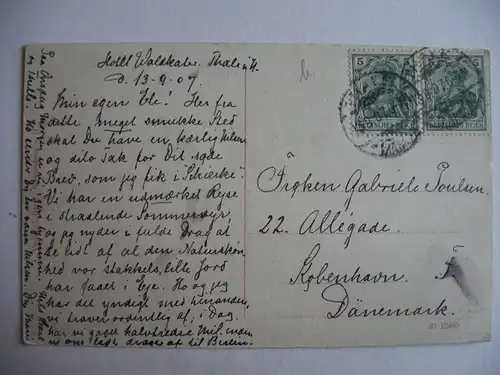 Hotel Waldkater. Thale i/H.
D. 13-9-07.
Min egen Ele! Her fra
dette meget smukke Sted
skal Du have en kærlig Hilsen
og dito Tak for Dit søde
Brev, som jeg fik i Schierke.
Vi har en udmærket Rejse
i straalende Sommervejr,
og jeg nyder i fulde Drag at
se lidt af al den Naturskøn-
hed vor stakkels, lille Jord
har faaet i Eje. Ho og jeg
har det yndigt med hinanden,
vi traver ordentlig af; i Dag
har vi gaaet halvtredie Mil, inden
vi om lidt drager af til Berlin.
Frøken Gabriele Poulsen.
22. Allégade.
København. F.
Dänemark.
5 5
DEUTSCHES REICH